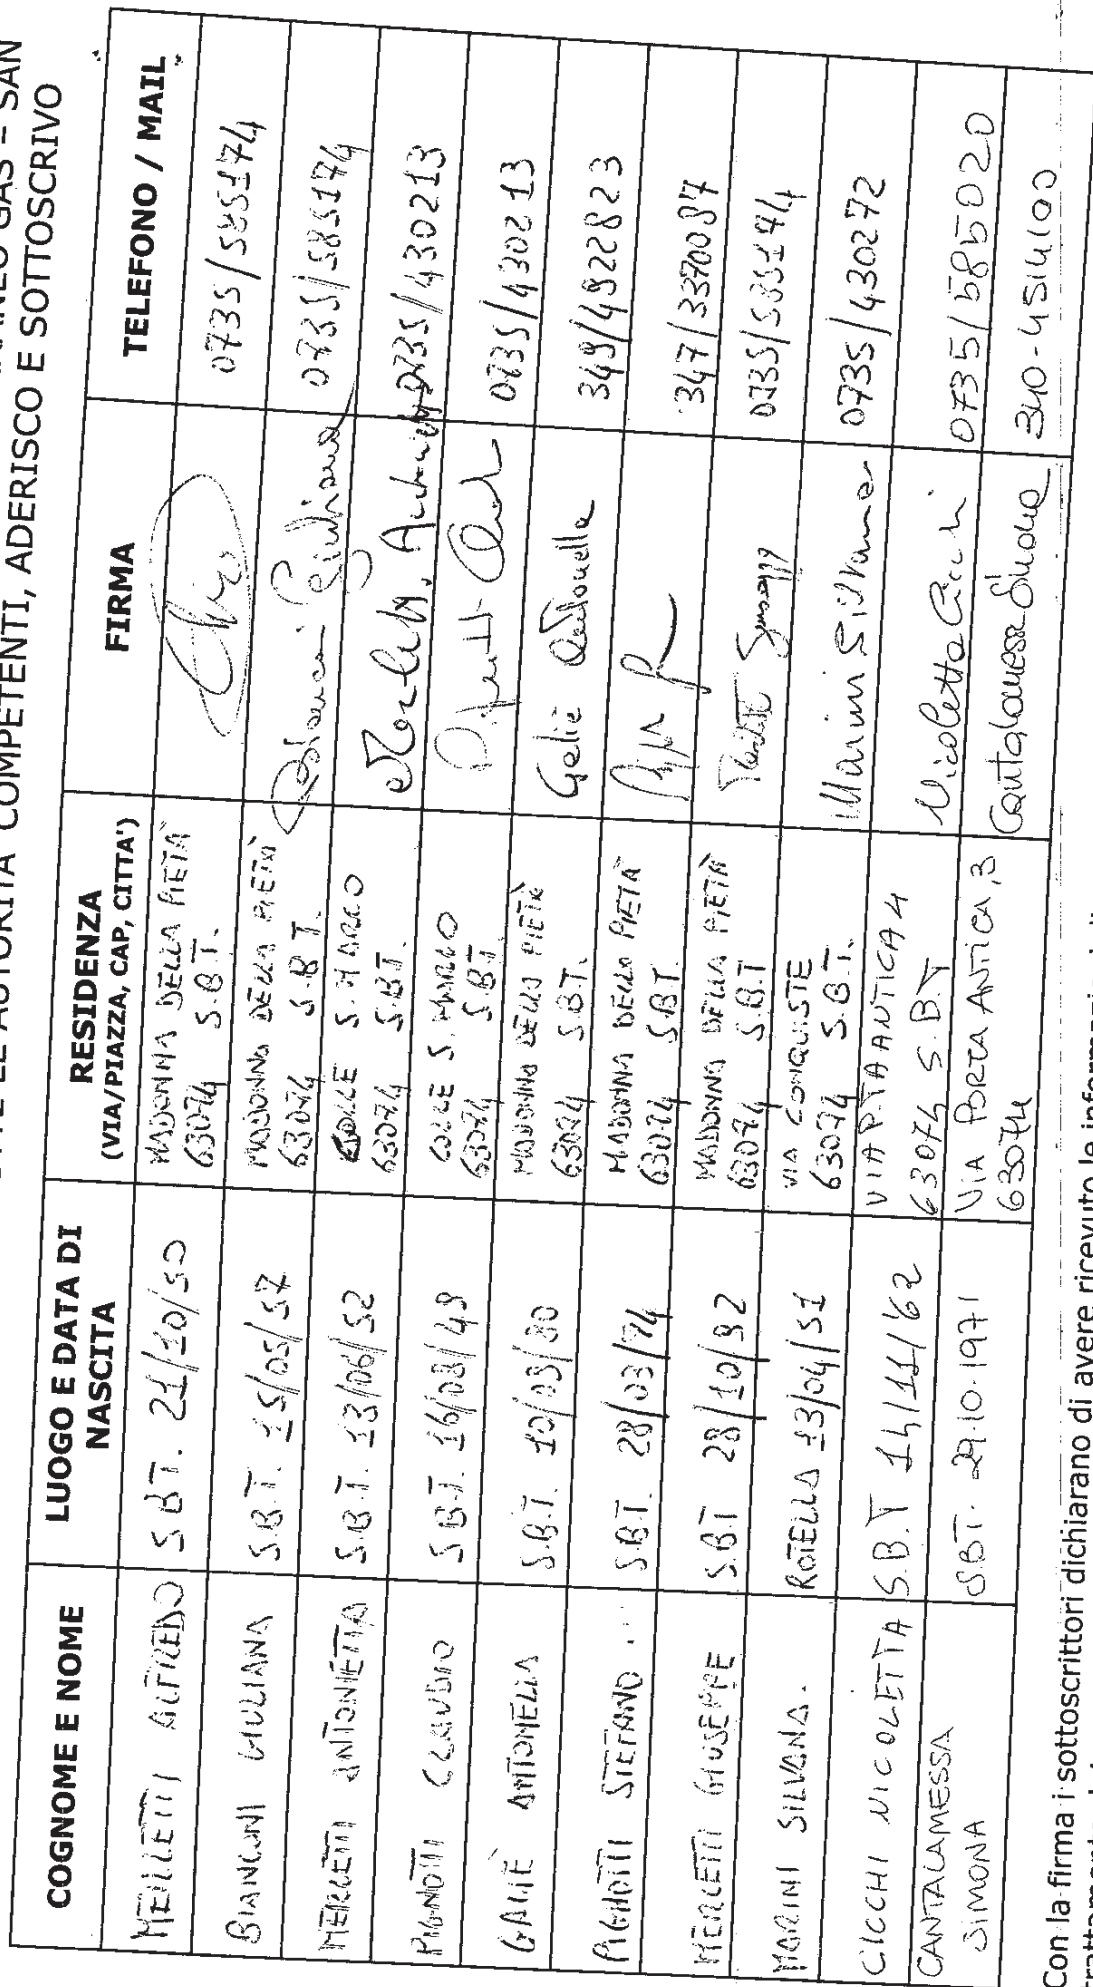 COMPETENTI, ADERISCO E SOTTOSCRIVO
COGNOME E NOME LUOGO E DATA DI NASCITA RESIDENZA (VIA/PIAZZA, CAP, CITTA') FIRMA TELEFONO / MAIL
MERLETTI ALFREDO S.B.T. 21/10/50 MADONNA DELLA PIETÀ 63074 S.B.T. 0735/585174
BIANCONI GIULIANA S.B.T. 15/05/57 MADONNA DELLA PIETÀ 63074 S.B.T. Bianconi Giuliana 0735/585174
MERLETTI ANTONIETTA S.B.T. 13/06/52 COLLE S. MARCO 63074 S.B.T. Merletti Antonietta 0735/430213
PIGNOTTI CLAUDIO S.B.T. 16/08/49 COLLE S. MARCO 63074 S.B.T. 0735/430213
GALIÈ ANTONELLA S.B.T. 10/09/80 MADONNA DELLA PIETÀ 63074 S.B.T. Galiè Antonella 349/4922823
PIGNOTTI STEFANO S.B.T. 28/03/74 MADONNA DELLA PIETÀ 63074 S.B.T. 347/3370087
MERLETTI GIUSEPPE S.B.T 28/10/92 MADONNA DELLA PIETÀ 63074 S.B.T Giuseppe 0735/585174
MARINI SILVANA. ROTELLA 13/04/51 VIA CONQUISTE 63074 S.B.T. Marini Silvana 0735/430272
CICCHI NICOLETTA S.B.T 14/11/62 VIA P.TA ANTICA 4 63074 S.B.T Nicoletta Cicchi 0735/585020
CANTALAMESSA SIMONA SBT. 29.10.1971 VIA PORTA ANTICA, 3 63074 Cantalamessa Simona 340-4514100
Con la firma i sottoscrittori dichiarano di avere ricevuto le informazioni